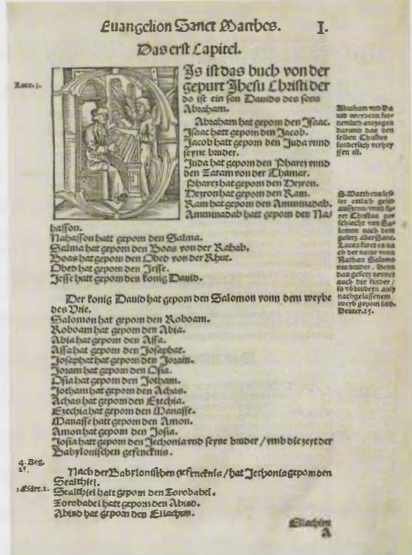 Euangelion Sanct Matthes. I.
Das erst Capitel.
Luce. 3.
Is ist das buch von der
gepurt Jhesu Christi der
do ist ein son Dauids des sons
Abraham.
Abraham hat geporn den Isaac.
Isaac hatt geporn den Jacob.
Jacob hatt geporn den Juda vnnd
seyne bruder.
Juda hat geporn den Pharez vnnd
den Zaram von der Thamar.
Pharez hat geporn den Hezron.
Hezron hat geporn den Ram.
Ram hat geporn den Amminadab.
Amminadab hatt geporn den Na-
hasson.
Nahasson hatt geporn den Salma.
Salma hat geporn den Boas von der Rahab.
Boas hat geporn den Obed von der Rhut.
Obed hat geporn den Jesse.
Jesse hatt geporn den konig Dauid.
Der konig Dauid hat geporn den Salomon vonn dem weybe
des Vrie.
Salomon hat geporn den Roboam.
Roboam hat geporn den Abia.
Abia hat geporn den Assa.
Assa hat geporn den Josaphat.
Josaphat hat geporn den Joram.
Joram hat geporn den Osia.
Osia hat geporn den Jotham.
Jotham hat geporn den Achas.
Achas hat geporn den Ezechia.
Ezechia hat geporn den Manasse.
Manasse hatt geporn den Amon.
Amon hat geporn den Josia.
Josia hatt geporn den Jechonia vnd seyne bruder / vmb die zeyt der
Babylonischen gefencknis.
4. Reg.
Nach der Babylonischen gefencknis / hat Jechonia geporn den
Sealthiel.
Sealthiel hatt geporn den Zorobabel.
Zorobabel hatt geporn den Abiud.
Abiud hat geporn den Eliachim.
Abraham vnd Da
uid werden fur-
nemlich antzogen
darumb das den
selben Christus
sonderlich verhey
ssen ist.
S. Mattheus les-
set ettlich gelid
aussen
Christus ge-
schlecht von Sa-
lomon nach dem
gesetz
Lucas
ch der natur von
Nathan Salomo
nis bruder. Denn
das gesetz nennet
auch die kinder /
so von brudern auß
nachgelassenem
weyb geporn sind.
Deuter. 25.
Eliachim
A